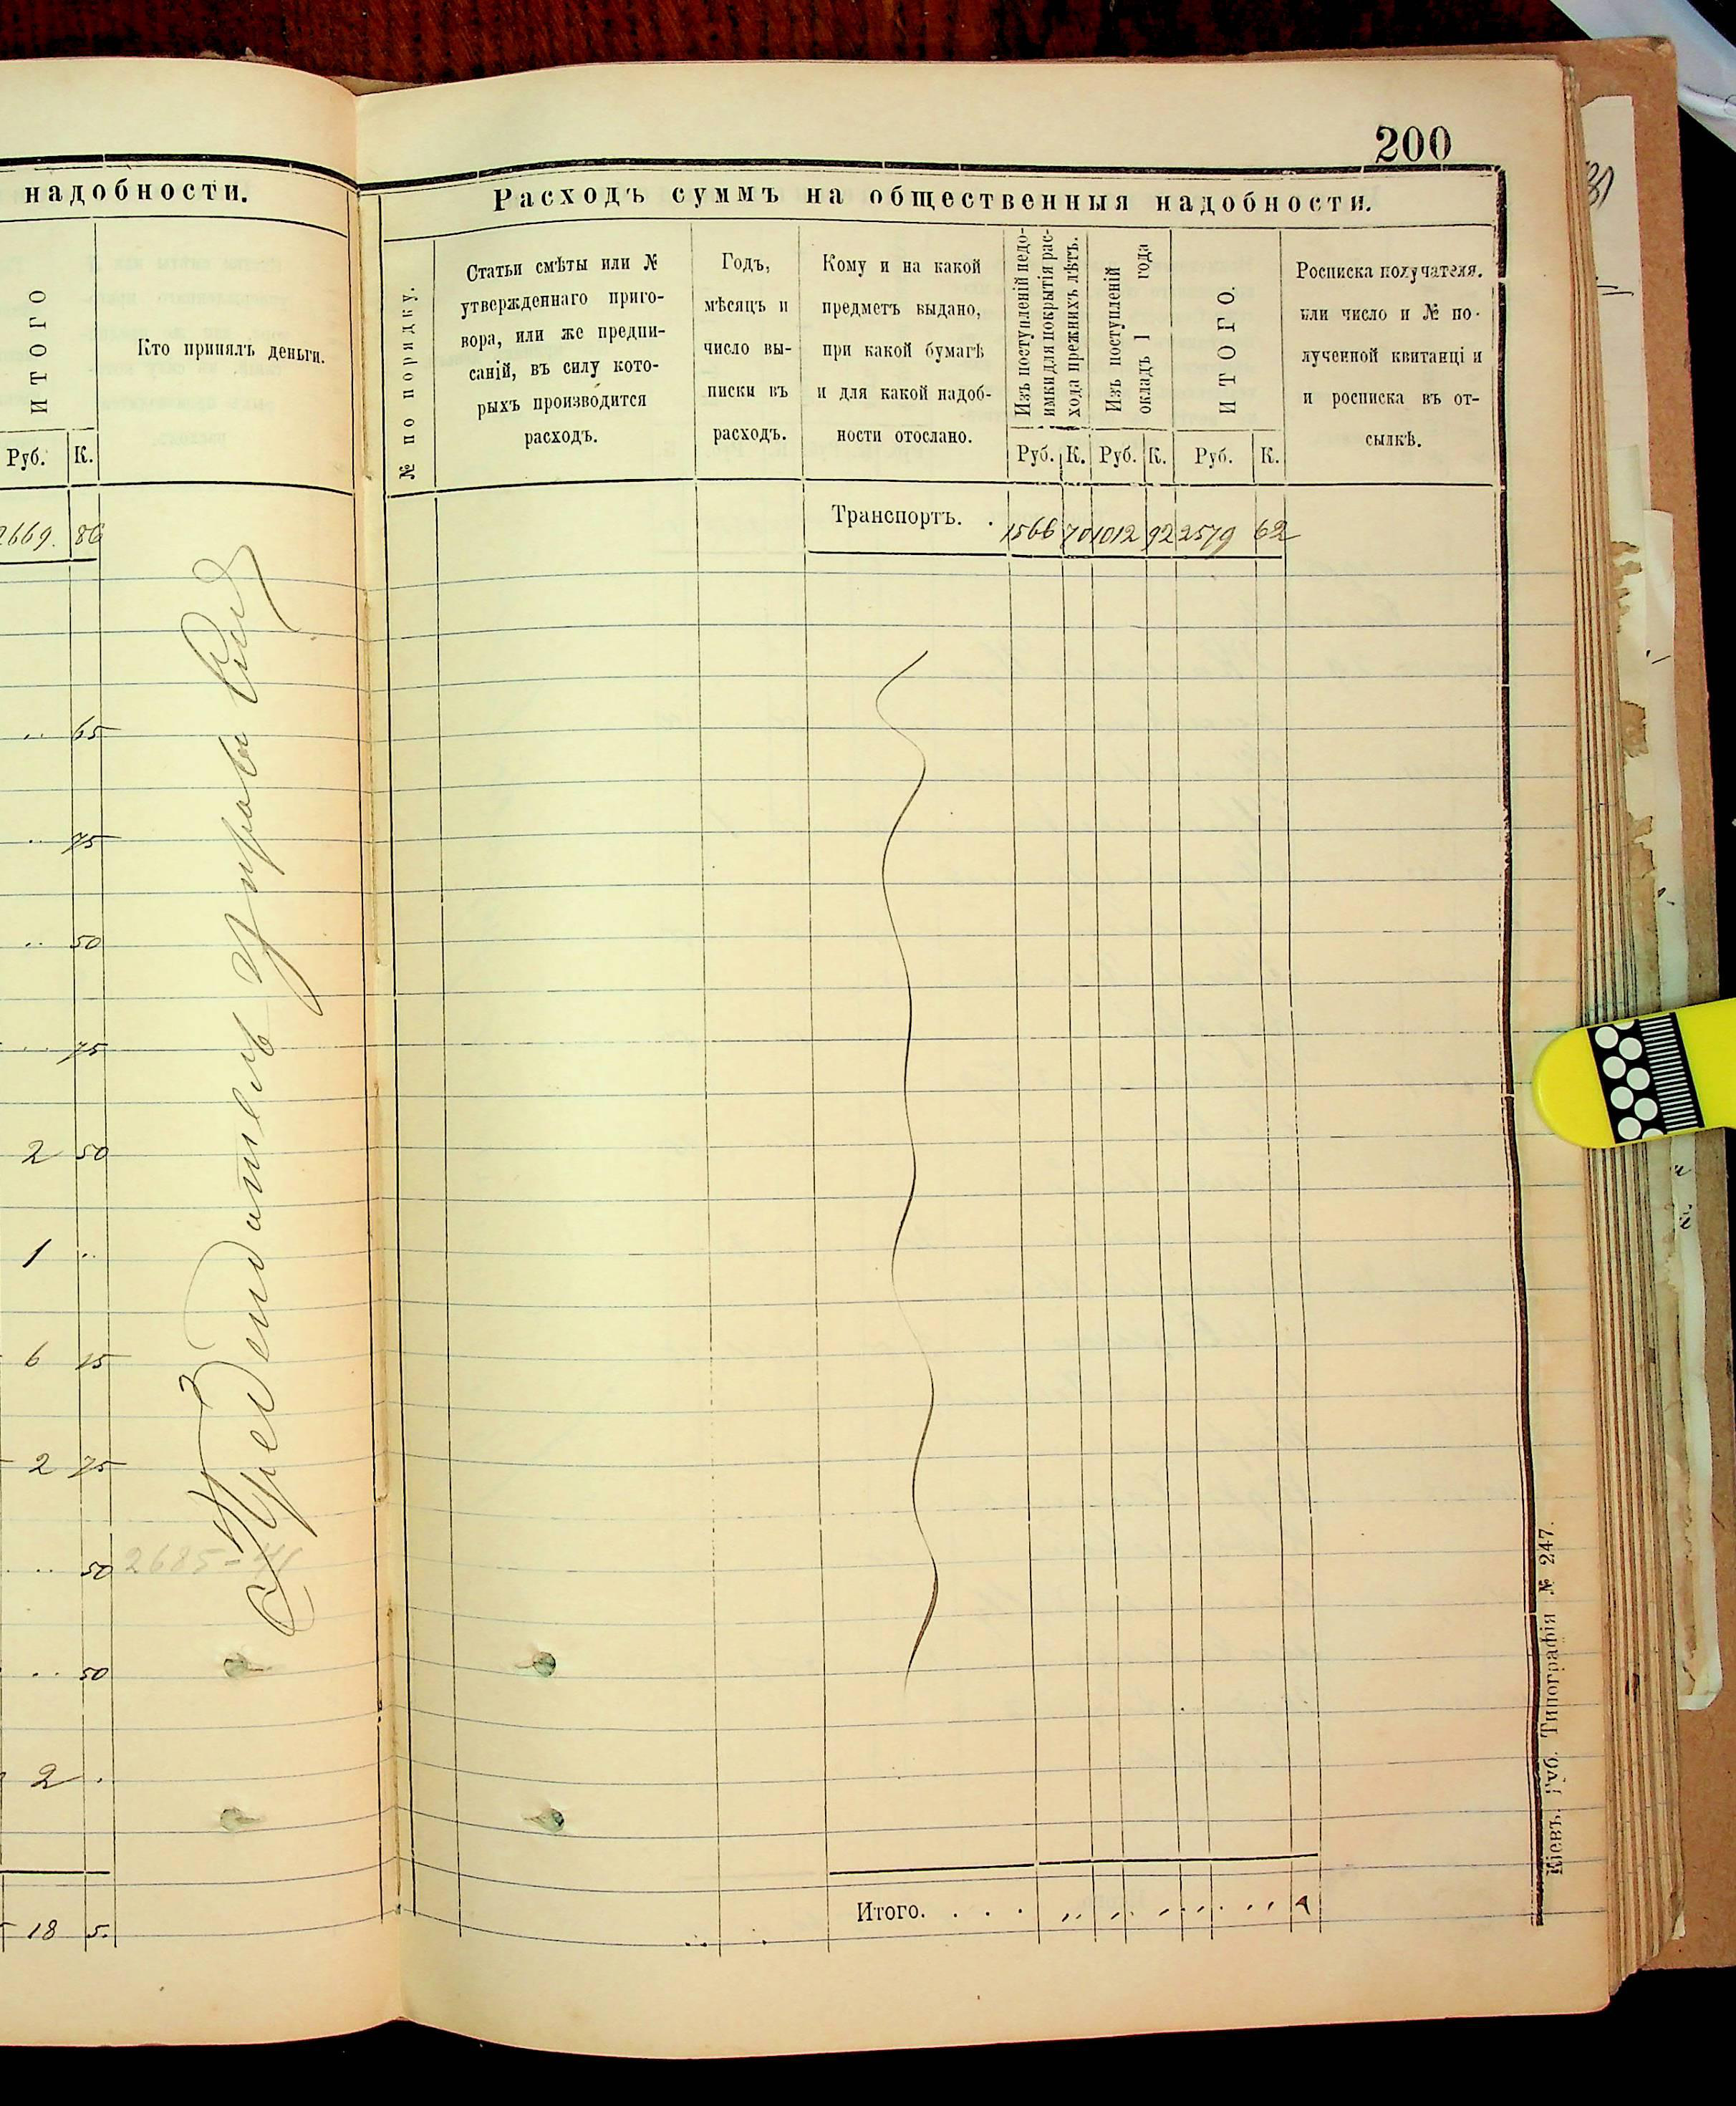 надобности.
ИТОГО
Кто принялъ деньги.
Руб. К.
2669. 86
65
75
50
75
2 50
1
6 15
2 75
50
50
2
18 5.
Предсѣдатель Управы
2685-41
200
Расходъ суммъ на общественныя надобности.
№ по порядку.
Статьи смѣты или №
утвержденнаго приго-
вора, или же предпи-
саній, въ силу кото-
рыхъ производится
расходъ.
Годъ,
мѣсяцъ и
число вы-
писки въ
расходъ.
Кому и на какой
предметъ выдано,
при какой бумагѣ
и для какой надоб-
ности отослано.
Изъ поступленій недо-
имки для покрытія рас-
хода прежнихъ лѣтъ.
Изъ поступленій
окладъ 1 года
ИТОГО
Росписка получателя.
или число и № по-
лученной квитанціи
и росписка въ от-
сылкѣ.
Руб. К. Руб. К. Руб. К.
Транспортъ. . 1566 70 1012 92 2579 62
Итого. . . .
Кіевъ. Губ. Типографія № 247.